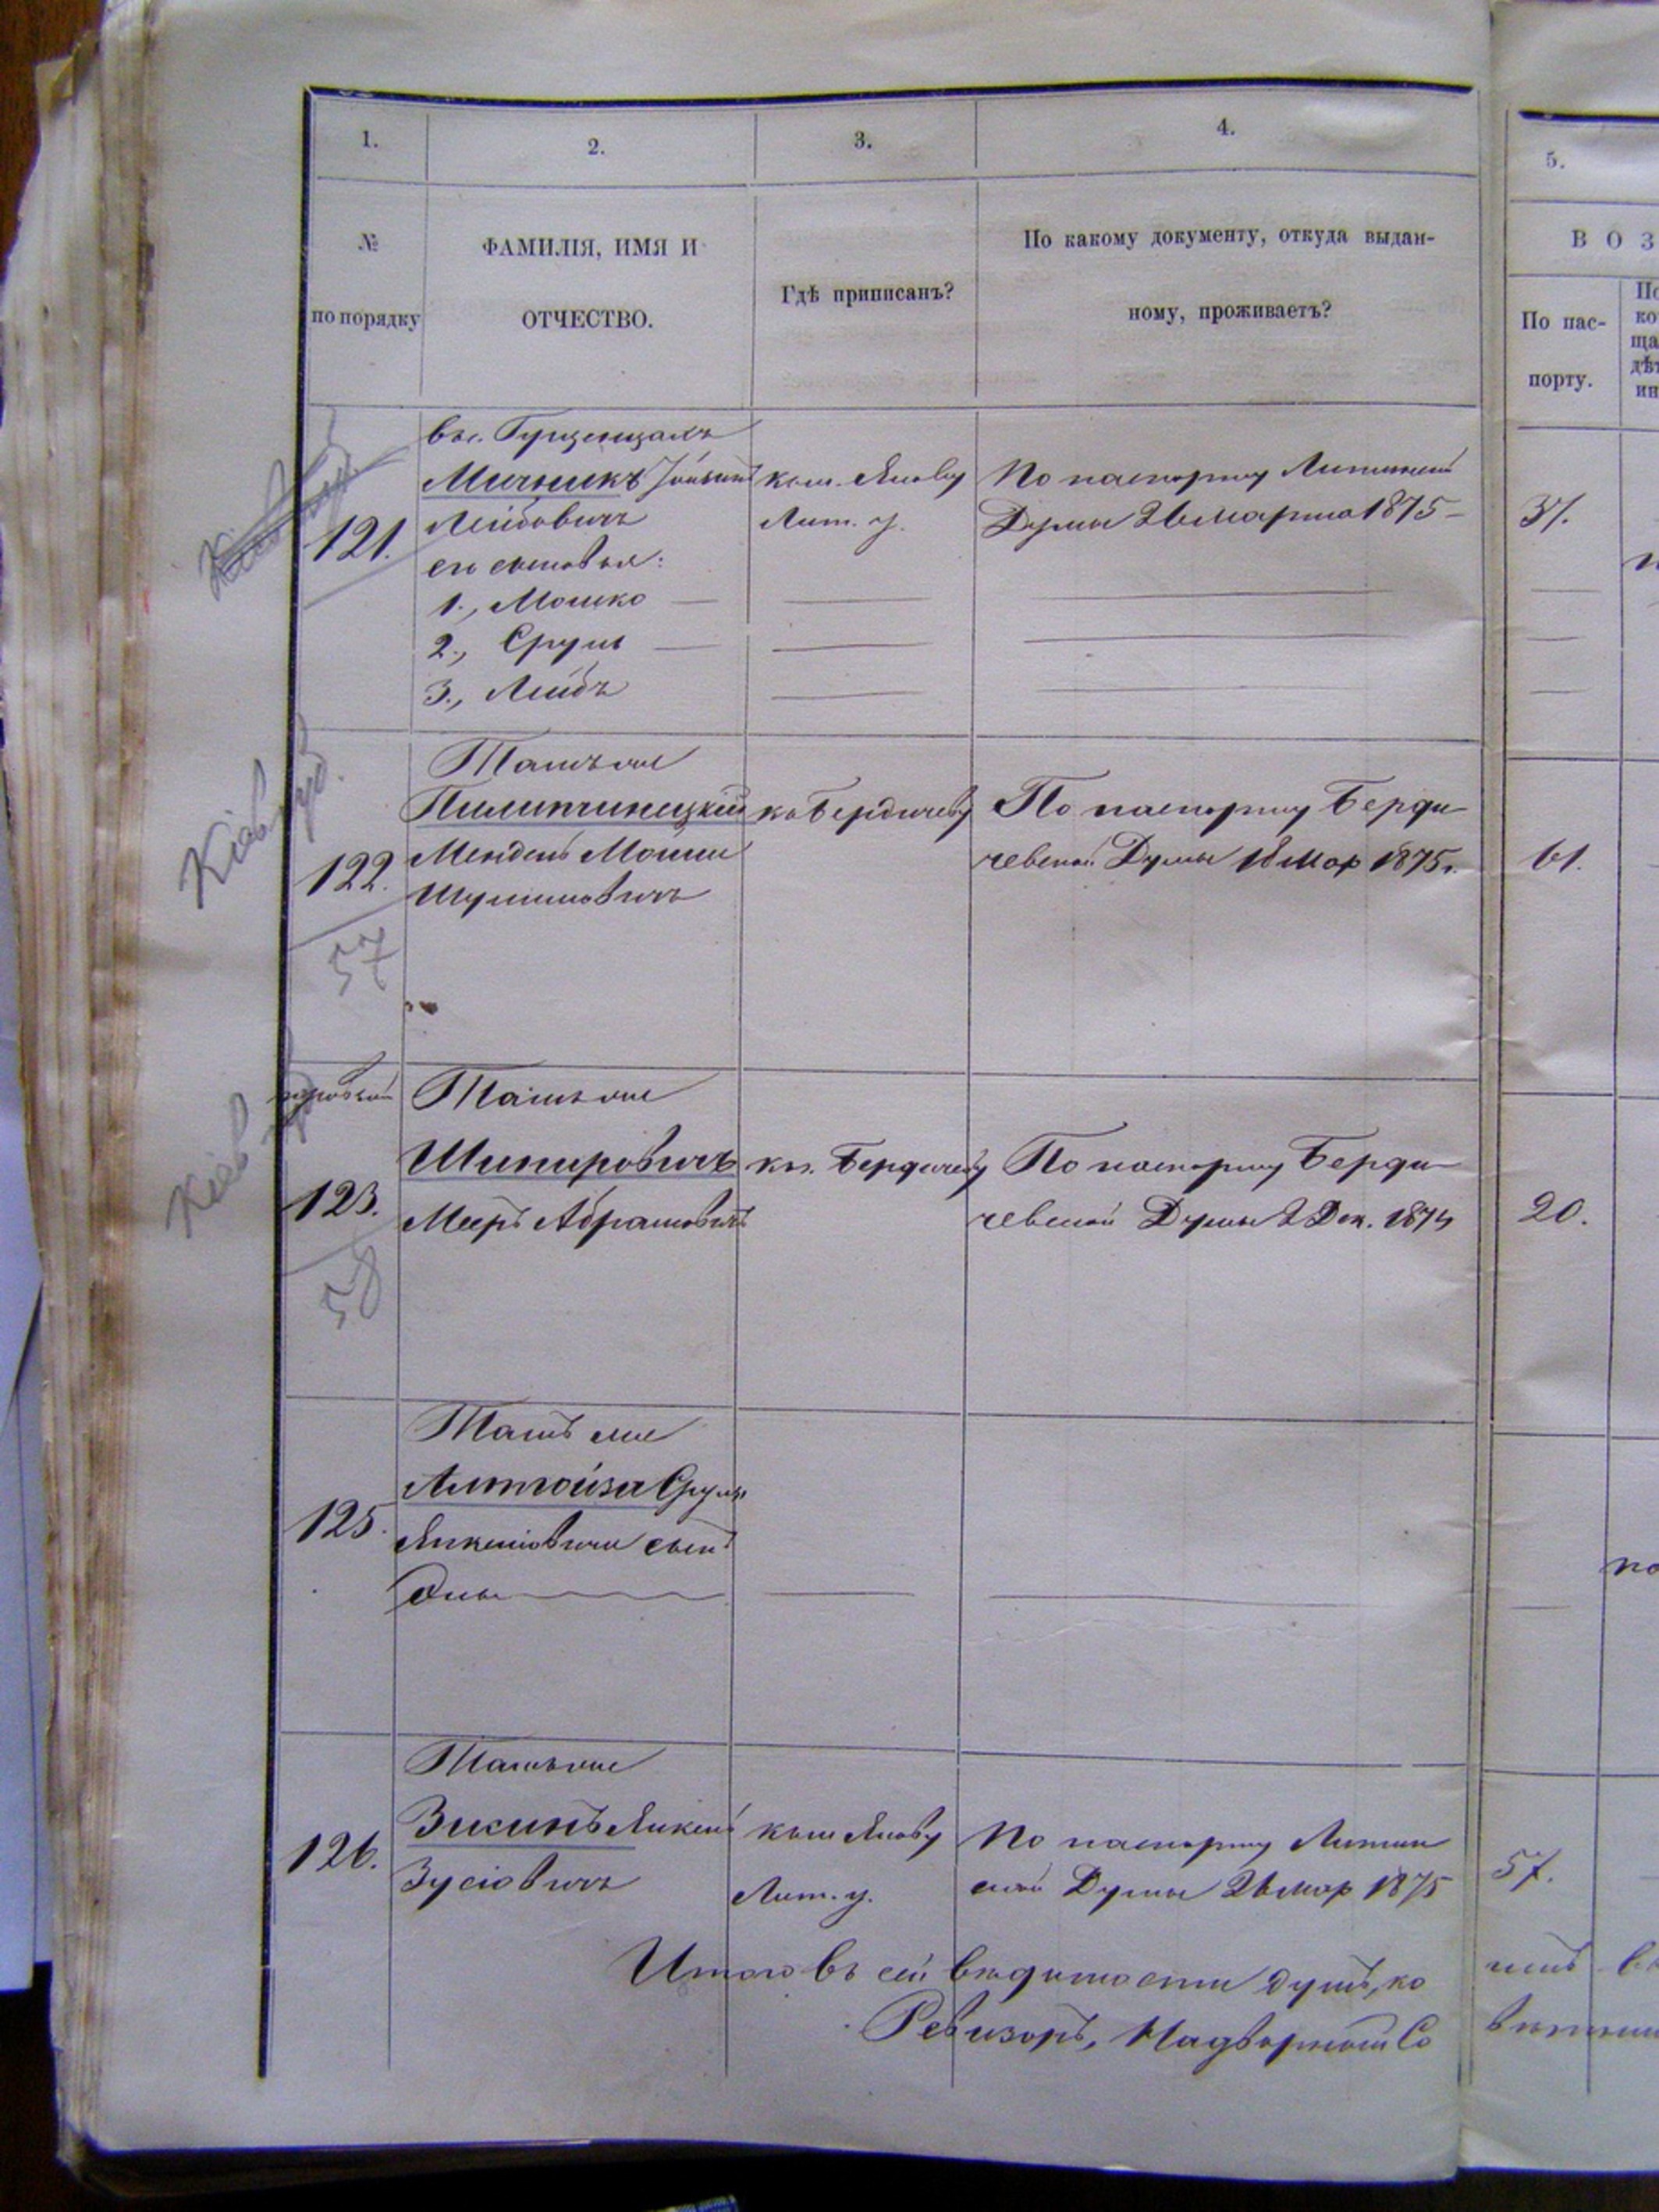 1.
2.
3.
4.
5.
№
по порядку
ФАМИЛІЯ, ИМЯ И
ОТЧЕСТВО.
Гдѣ приписанъ?
По какому документу, откуда выдан-
ному, проживаетъ?
В О З
По пас-
порту.
По
ко
ща
дѣт
ин
въ с.
121.
Мичникъ
Лейбовичъ
его сыновья:
1., Мошко —
2., Сруль —
3., Лейбъ
къ м. Янову
Лит. у.
По паспорту Литинской
Думы 26 марта 1875 —
37.
Кіев губ.
Тамъ же
122.
Пилитинецкій
Мендель Мошко
Шулимовичъ
57
къ Бердичеву
По паспорту Берди
чевской Думы 18 Мар 1875 г.
61.
Кіев
Тамъ же
123.
Шпировичъ
Мееръ Абрамовичъ
58
къ г. Бердичеву
По паспорту Берди
чевской Думы 2 Дек. 1874
20.
Тамъ же
125.
Сруль
Янкеліовичъ сынъ
по
Тамъ же
126.
Зисинъ Янкель
Зусіовичъ
къ м Янову
Лит. у.
По паспорту Литин
ской Думы 26 мар 1875
57.
Итого въ сей вѣдомости душъ, ко
Ревизоръ, Надворный Со